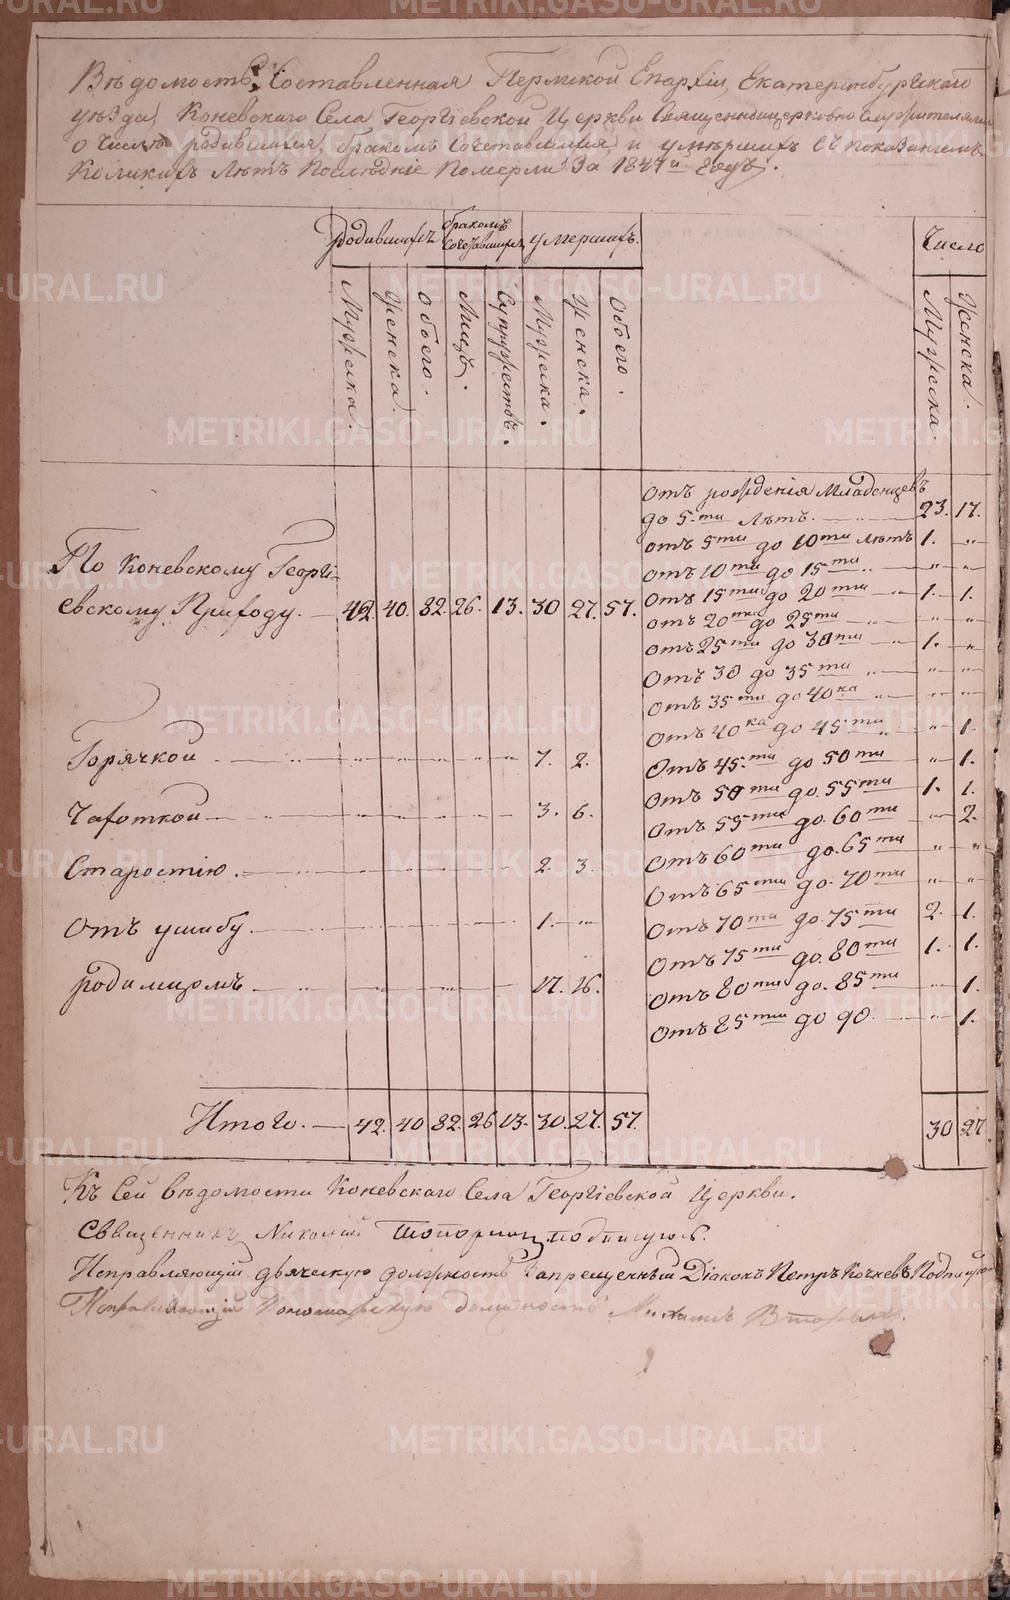 Вѣдомость, Составленная Пермской Епархіи, Екатеринбургскаго
уѣзда, Коневскаго Села Георгіевской Церкви Священноцерковно служителями
о числѣ родившихся, бракомъ сочетавшихся, и умѣршихъ съ показаніемъ
Коликихъ Лѣтъ Послѣдніе Померли За 1847й Годъ.
родившихся бракомъ сочетавшихся умершихъ. Число
Мужеска. Женска. Обоего. Лицъ. Супружествъ. Мужеска. Женска. Обоего. Мужеска. Женска.
Отъ рожденія Младенцевъ
до 5-ти Лѣтъ. 23. 17.
отъ 5ти до 10ти лѣтъ 1. "
отъ 10ти до 15ти " "
Отъ 15ти до 20ти 1. 1.
отъ 20ти до 25ти " "
отъ 25ти до 30ти 1. "
Отъ 30 до 35ти " "
отъ 35ти до 40ка " "
Отъ 40ка до 45ти " 1.
Отъ 45ти до 50ти " 1.
Отъ 50ти до 55ти 1. 1.
Отъ 55ти до 60ти " 2.
Отъ 60ти до 65ти " "
Отъ 65ти до 70ти " "
Отъ 70ти до 75ти 2. 1.
Отъ 75ти до 80ти 1. 1.
Отъ 80ти до 85ти " 1.
Отъ 85ти до 90. " 1.
По Коневскому Георгі-
евскому Приходу. 42. 40. 82. 26. 13. 30 27. 57.
Горячкой " " " " " 7. 2.
Чахоткой 3. 6.
Старостію. 2. 3.
Отъ ушибу 1. "
родимцомъ 17. 16.
Итого. 42. 40 82. 26 13. 30. 27. 57. 30 27.
Къ Сей вѣдомости Коневскаго Села Георгіевской Церкви.
Священникъ Николай Топорищ подписуюсь.
Исправляющій дьяческую должность Запрещенный Діаконъ Петръ Кочневъ Подписуюсь
Исправляющій Пономарскую должность Михаилъ Вторыхъ.
METRIKI.GASO-URAL.RU